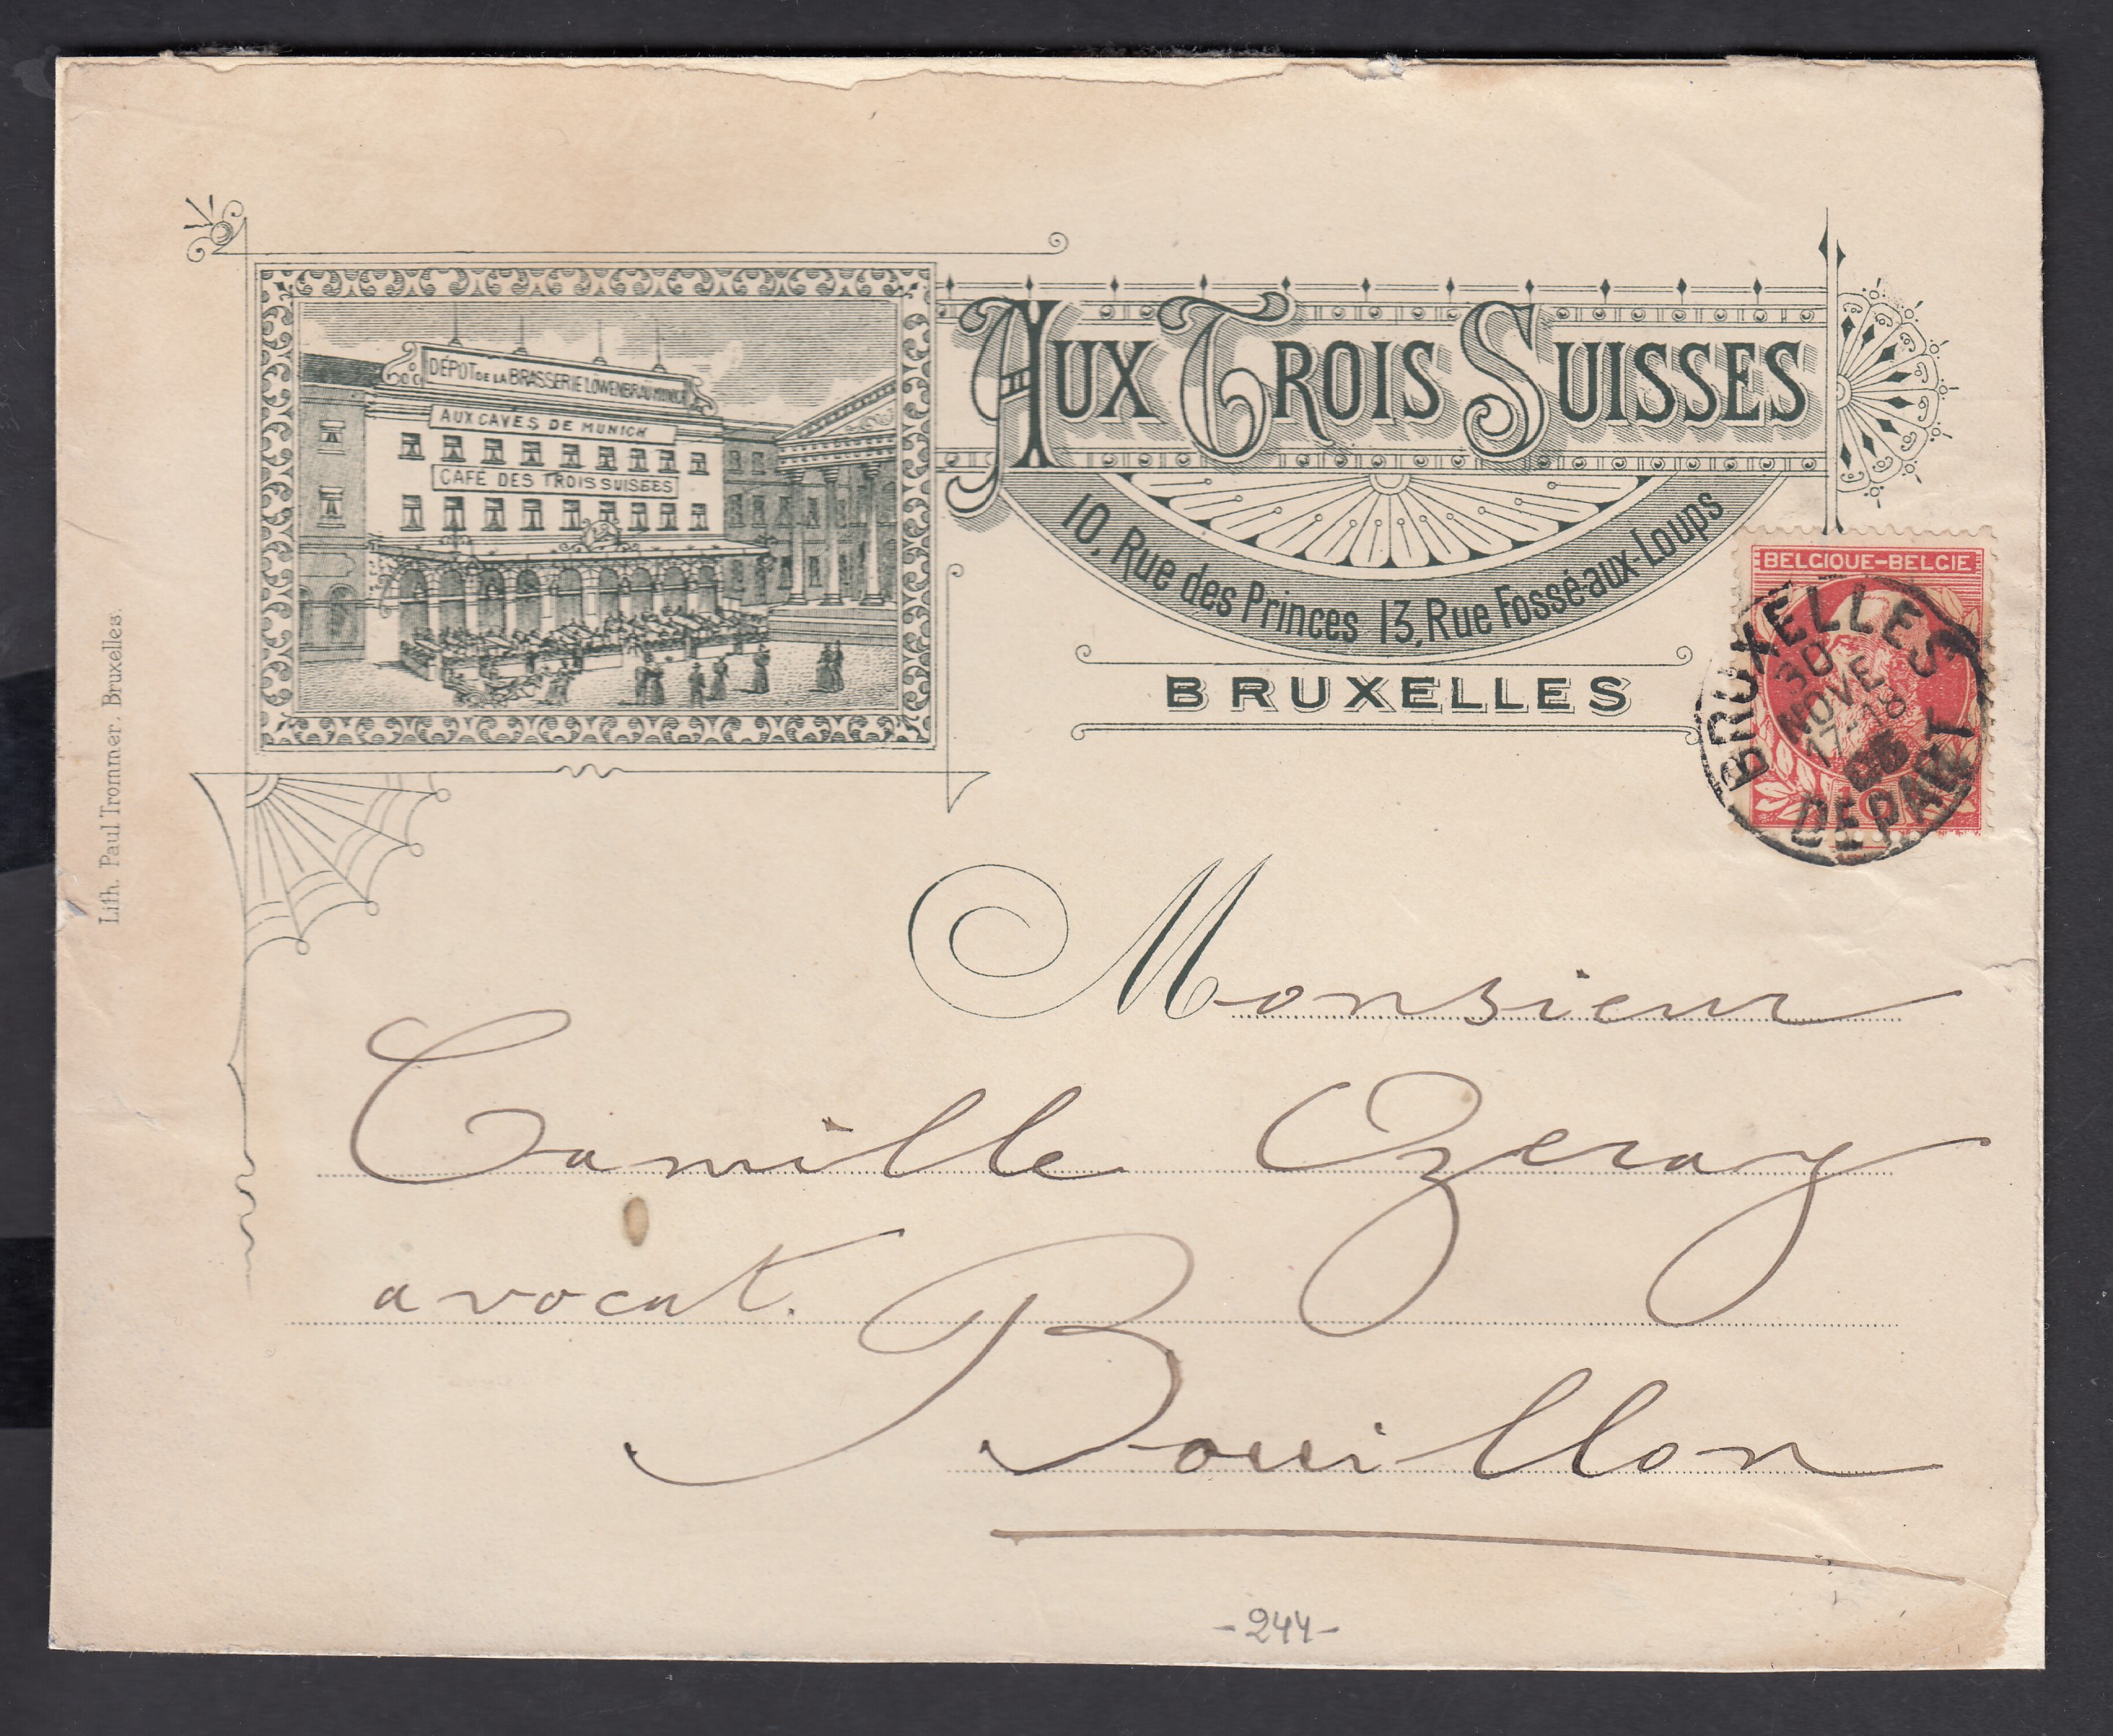 DÉPOT DE LA BRASSERIE LÖWENBRÄU MUNICH
AUX CAVES DE MUNICH
CAFÉ DES TROIS SUISSES
AUX TROIS SUISSES
10, Rue des Princes 13, Rue Fossé-aux-Loups
BRUXELLES
BELGIQUE-BELGIE
BRUXELLES
30
NOVE
17-18
DEPART
Lith. Paul Trommer. Bruxelles.
Monsieur
Camille Ozeray
avocat.
Bouillon
-244-